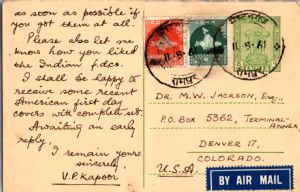 as soon as possible if
you got them at all.
Please also let me
know how you liked
the Indian f.d.cs.
I shall be happy to
receive some recent
American first day
covers with complete sed.
Awaiting an early
reply.
I remain yours
sincerely,
V.P. Kapoor
DR. M.W. JACKSON, ESQ.,
P.O. BOX 5362, TERMINAL-
ANNEX.
DENVER 17,
COLORADO.
U.S.A.
BY AIR MAIL